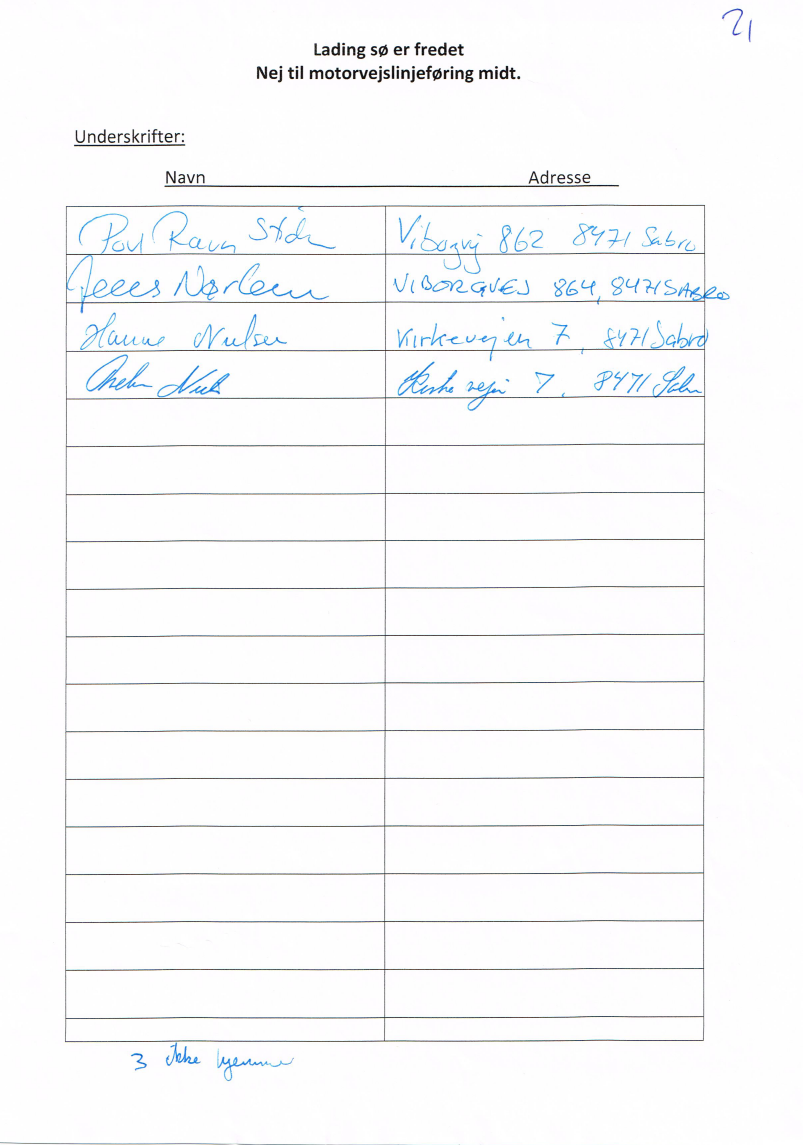 21
Lading sø er fredet
Nej til motorvejslinjeføring midt.
Underskrifter:
Navn Adresse
Poul Ravn Viborgvej 862 8471 Sabro
VIBORGVEJ 864, 8471 SABRO
Hanne Nielsen Kirkevejen 7, 8471 Sabro
Kirkevejen 7, 8471 Sabro
3 ikke hjemme